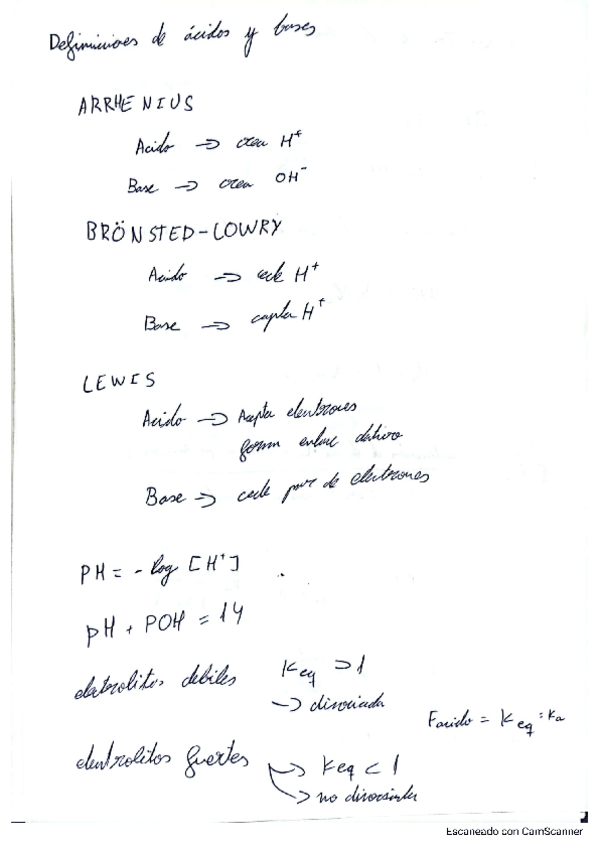 Definiciones de ácidos y bases
ARRHENIUS
Acido → crea H⁺
Base → crea OH⁻
BRÖNSTED-LOWRY
Acido → cede H⁺
Base → capta H⁺
LEWIS
Acido → Acepta electrones
forma enlace dativo
Base → cede par de electrones
PH = - log [H⁺]
pH + POH = 14
electrolitos debiles Keq > 1
→ disociada
Facido = Keq = Ka
electrolitos fuertes → Keq < 1
→ no disociada
Escaneado con CamScanner